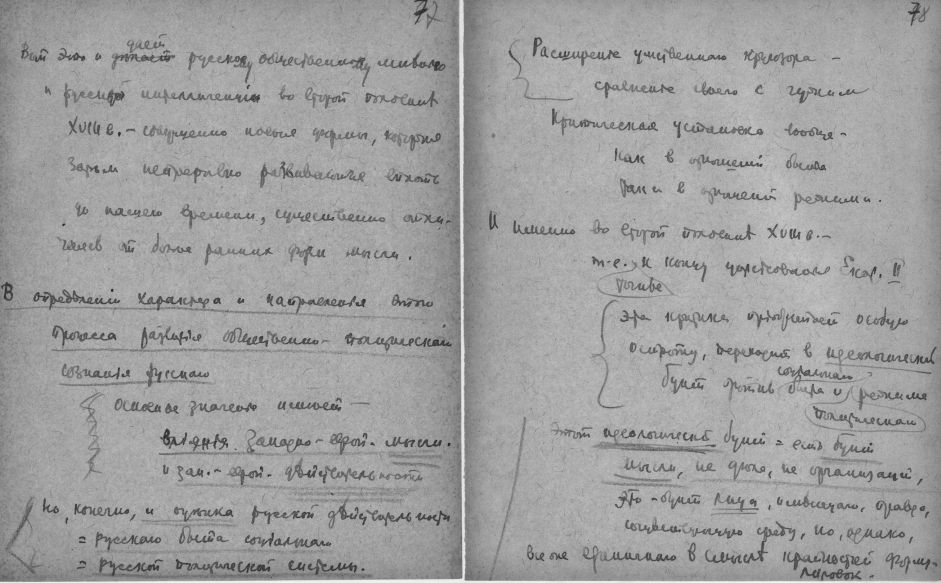 77
Вот это и дает русскому общественному мнению
и русской интеллигенции во второй половинѣ
XVIII в. – совершенно новыя формы, которыя
затем непрерывно развиваются вплоть
до нашего времени, существенно отли-
чаясь от более ранних форм мысли.
В определении характера и направления этого
процесса развития общественно-политической
сознания русского
Основное значение имеет —
влияния западно-европ. мысли.
и зап.-европ. действительности
Но, конечно, и оценка русской действительности
= русского быта социального
= русской политической системы.
78
Расширение умственного кругозора –
сравнение своего с чужим
Критическая установка вообще –
Как в отношении быта
так и в отношении режима.
И именно во второй половинѣ XVIII в. –
т.-е. к концу царствования Екат. II
эта критика приобретает особую
остроту, переходит в идеологический
социального
бунт против быта и режима
политического
Этот идеологический бунт = есть бунт
мысли, не дела, не организаций,
это – бунт лица, имеющего, правда,
сочувствующую среду, но, однако,
все же единичного в смысле крайностей форму-
лировок.